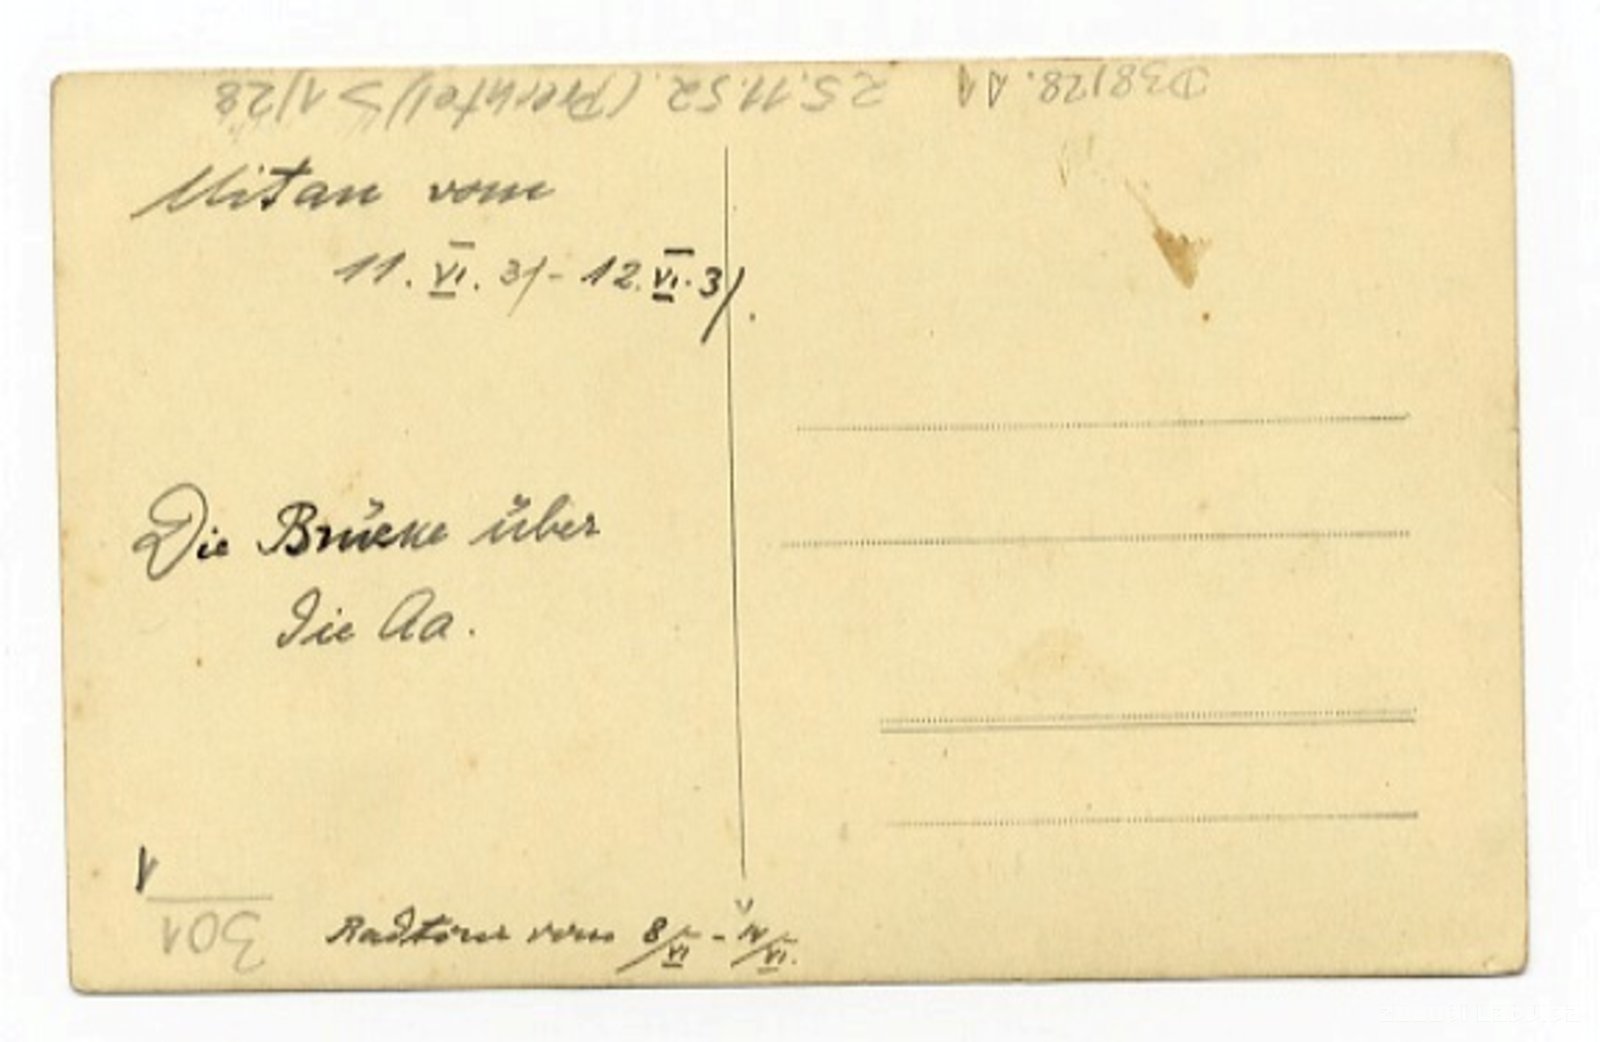 D38/28. 25.11.52. S 1/28
Mitau vom
11. VI. 31 - 12. VI. 31.
Die Brücke über
die Aa.
301
Radtour vom 8/VI - /VI.